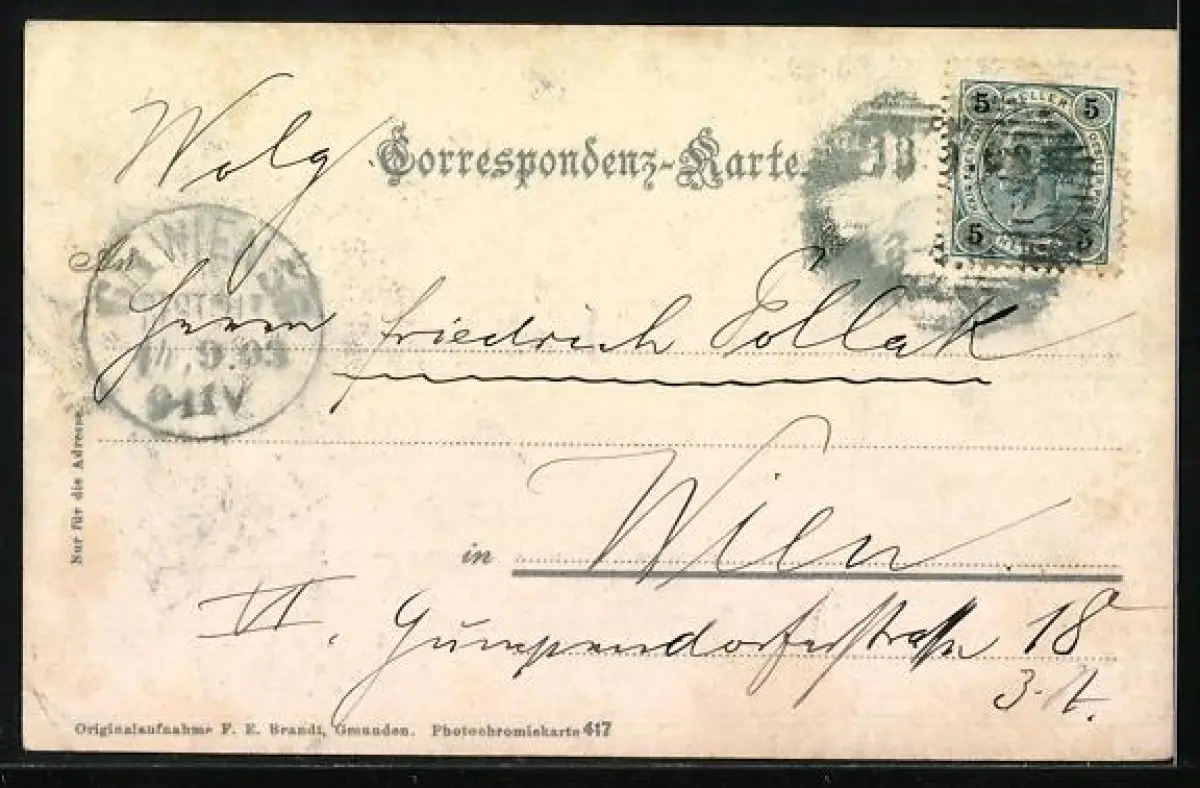 Wolg.
Correspondenz-Karte.
5 HELLER 5
5 5
An
WIEN
BESTELLT
9.03
Herrn Friedrich Pollak
Nur für die Adresse.
in Wien
VI. Gumpendorferstrasse 18a
3. St.
Originalaufnahme F. E. Brandt, Gmunden. Photochromiekarte 417